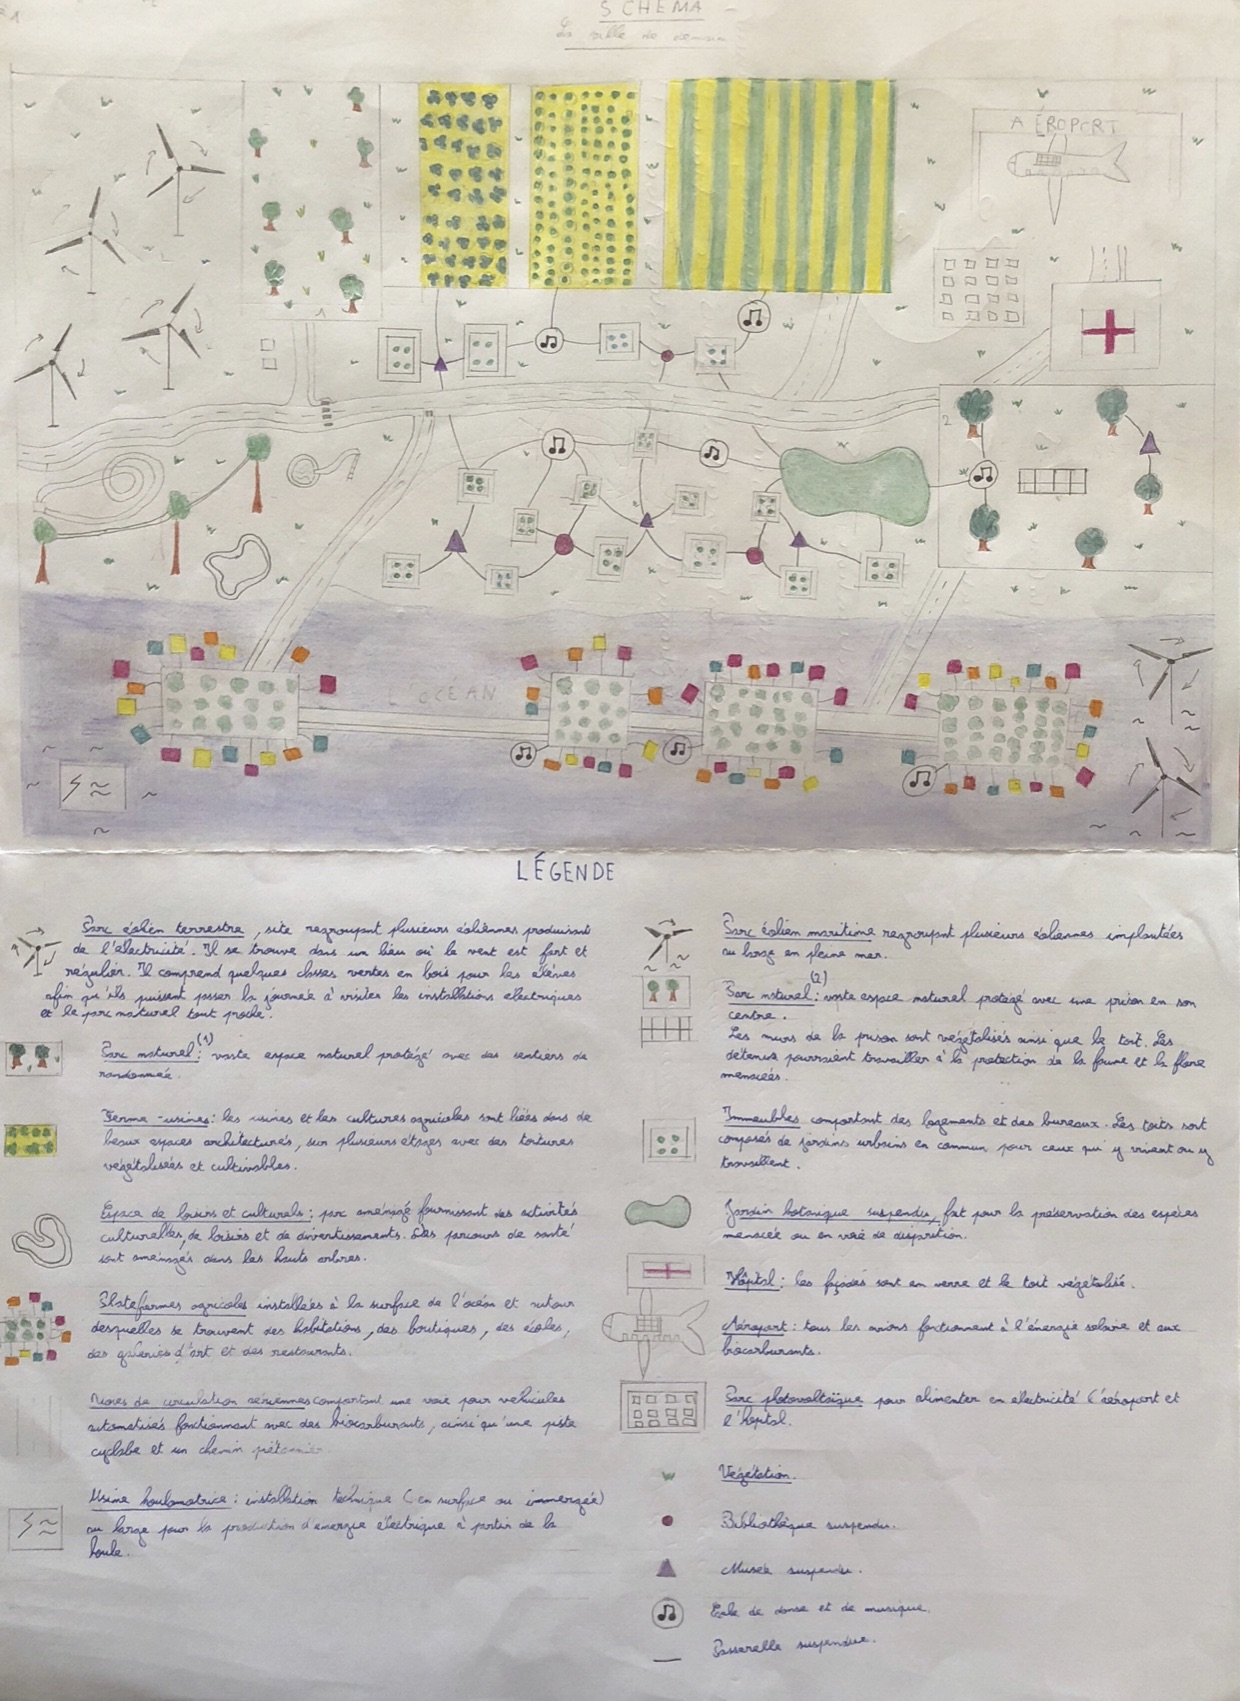 SCHEMA
La ville de demain
AÉROPORT
2
1
OCÉAN
LÉGENDE
Parc éolien terrestre, site regroupant plusieurs éoliennes produisant
de l'électricité. Il se trouve dans un lieu où le vent est fort et
régulier. Il comprend quelques classes vertes en bois pour les élèves
afin qu'ils puissent passer la journée à visiter les installations électriques
et le parc naturel tout proche.
Parc naturel (1) : vaste espace naturel protégé avec des sentiers de
randonnée.
Ferme-usines : les usines et les cultures agricoles sont liées dans de
beaux espaces architecturés, sur plusieurs étages avec des toitures
végétalisées et cultivables.
Espace de loisirs et culturels : parc aménagé fournissant des activités
culturelles, de loisirs et de divertissements. Des parcours de santé
sont aménagés dans les hauts arbres.
Plateformes agricoles installées à la surface de l'océan et autour
desquelles se trouvent des habitations, des boutiques, des écoles,
des galeries d'art et des restaurants.
de circulation aériennes comportant une voie pour véhicules
automatisés fonctionnant avec des biocarburants, ainsi qu'une piste
cyclable et un chemin piétonnier
Usine houlomotrice : installation technique (en surface ou immergée)
au large pour la production d'énergie électrique à partir de la
houle.
Parc éolien maritime regroupant plusieurs éoliennes implantées
au large en pleine mer.
Parc naturel (2) : vaste espace naturel protégé avec une prison en son
centre.
Les murs de la prison sont végétalisés ainsi que le toit. Les
détenus pourraient travailler à la protection de la faune et la flore
menacées.
Immeubles comportant des logements et des bureaux. Les toits sont
composés de jardins urbains en commun pour ceux qui y vivent ou y
travaillent.
Jardin botanique suspendu, fait pour la préservation des espèces
menacée ou en voie de disparition.
Hôpital : les façades sont en verre et le toit végétalisé.
Aéroport : tous les avions fonctionnent à l'énergie solaire et aux
biocarburants.
Parc photovoltaïque pour alimenter en électricité l'aéroport et
l'hôpital.
Végétation.
Bibliothèque suspendu.
Musée suspendu.
École de danse et de musique.
Passerelle suspendue.